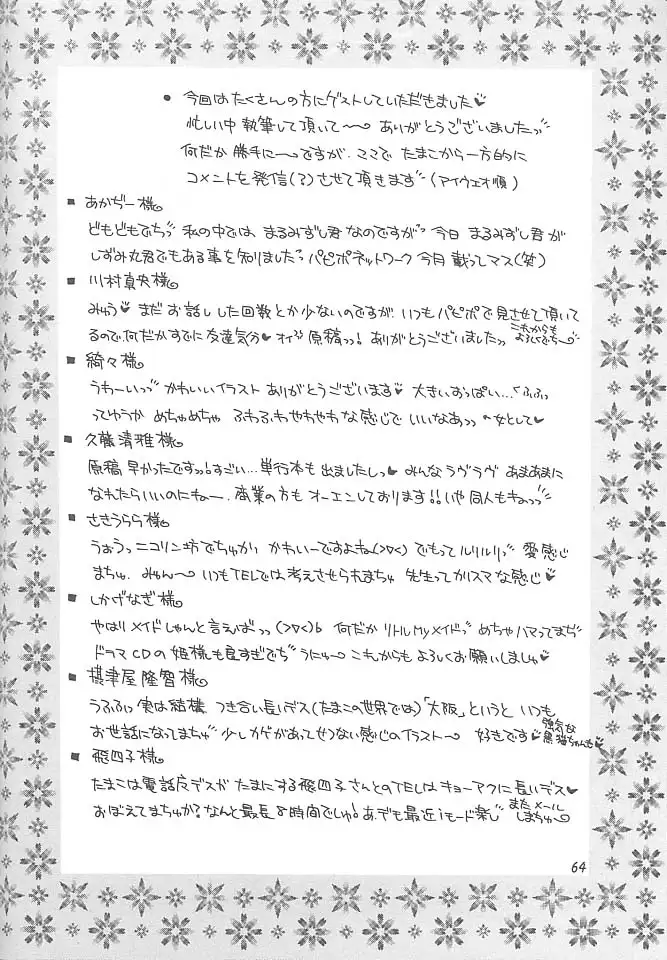 ● 今回はたくさんの方にゲストしていただきました♥
忙しい中執筆して頂いて〜 ありがとうございましたっッ
何だか勝手に〜ですが、ココで たまこから一方的に
コメントを発信(?)させて頂きます (アイウェオ順)
■ あかぢー様
どもどもでちっ 私の中では、まるみずし君なのですがっ 今日 まるみずし君が
しずみ丸君でもある事を知りましたっ パピポネットワーク 今月 載ってマス(笑)
■ 川村真央様
みゅう♥ まだ お話しした回数とか少ないのですが、いつもパピポで見させて頂いて
るので、何だかすでに友達気分♥ 原稿っっ! ありがとうございましたっッ これからもよろしくでち〜
■ 綺々様
うわーいっッ かわいいイラスト ありがとうございます♥ 大きいおっぱい…くふふっ
ってゆうか めちゃめちゃ ふわふわやわやわな感じで いいなあっッ 女として♥
■ 久藤清雅様
原稿 早かったですっっ!すごい…単行本も出ましたしっ♥ みんなラヴラヴ あまあまに
なれたらいいのにキュー、商業の方も オーエンしております!!いや 同人もきゅっッ
■ ささうらら様
うぉうっ ニコリン坊でちゅかり かわいーですよね(>▽<) でもって ルリルリッ 愛感じ
まちゅ、みゅん〜 いつもTELでは考えさせられまちゅ 先生ってカリスマな感じ♥
■ しかげなぎ様
やはり メイドしゃんと言えばっッ (>▽<)b 何だか リトルMyメイドッ めちゃハマってまぢ
ドラマCDの姫様も良すぎでぢ うにゅ〜 これからも よろしくお願いしましゅ♥
■ 摂津屋隆智様
うふふっ 実は結構、つき合い長いデス(たまこの世界では)「大阪」というと いつも
お世話になってまちゅ 少しカゲがあってせつない感じのイラスト〜 好きです♥ 強気な黒猫ちゃんも♥
■ 飛四子様
たまこは電話反デスが たまにする飛四子さんとのTELはキョーアクに長いデス♥
おぼえてまちゅか?なんと最長8時間でしゅ!あ、でも最近iモード楽し またメールしまちゅ〜
64